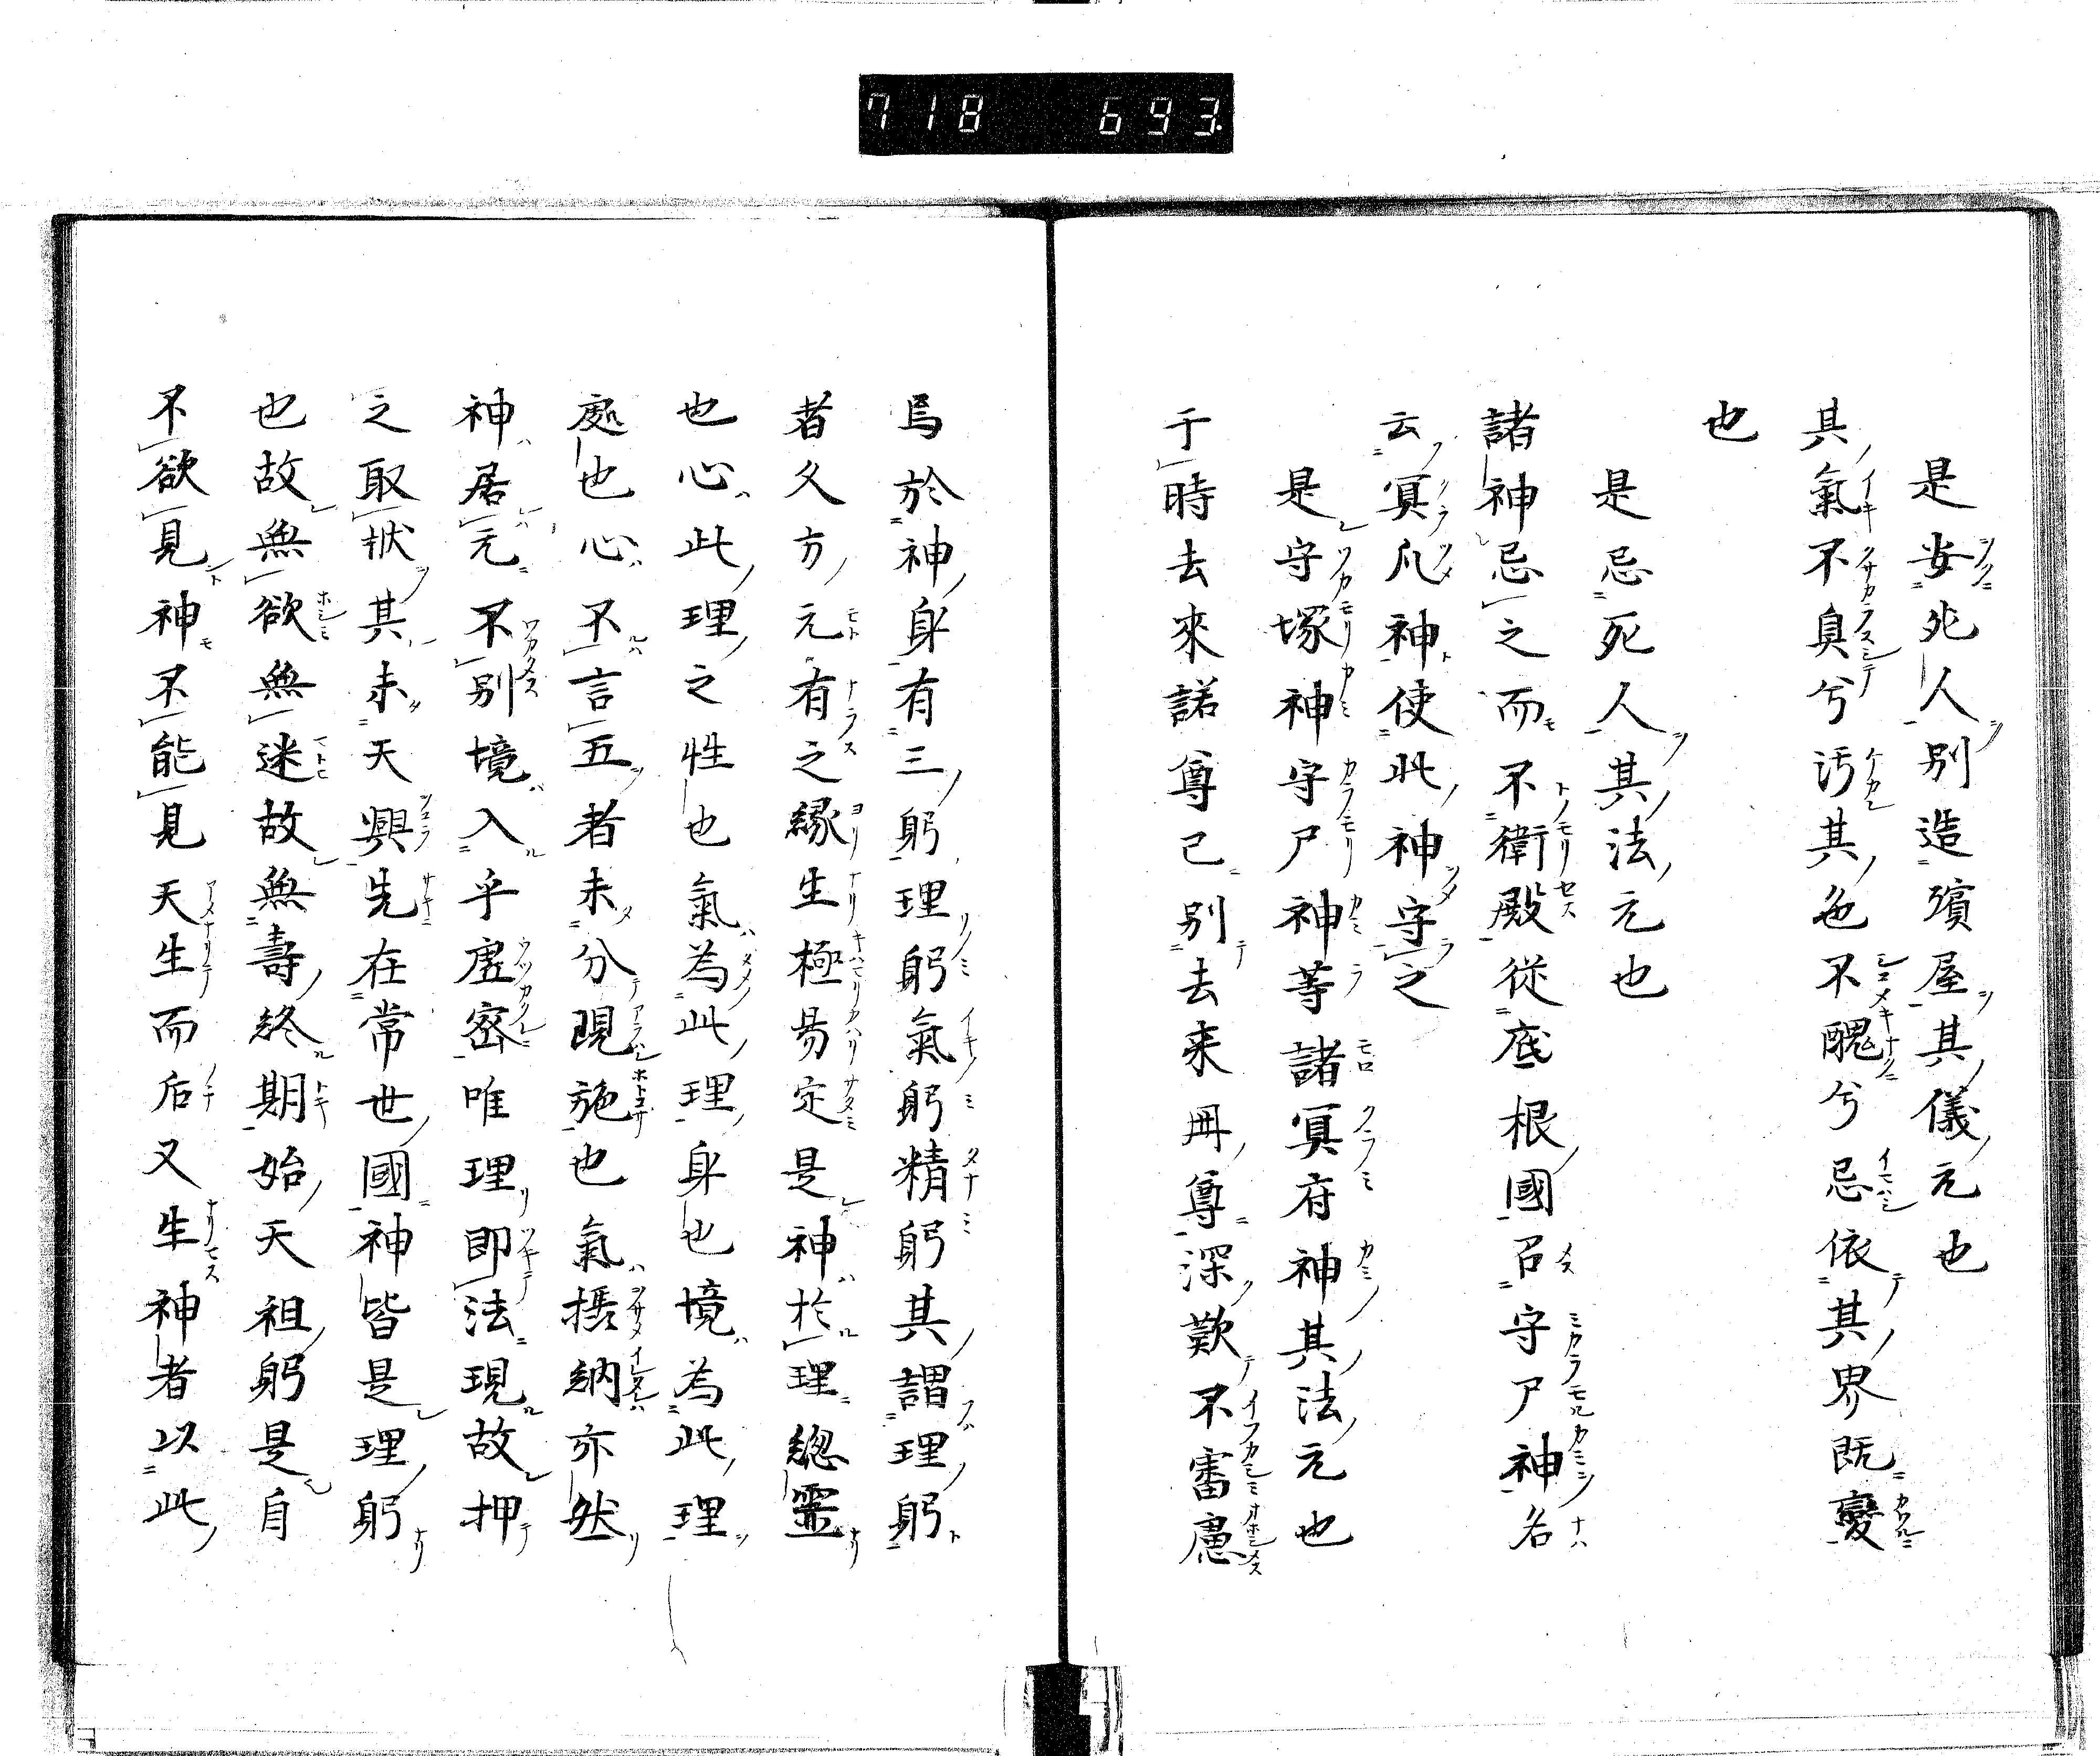 718 693.
是安死人別造殯屋其儀元也
其氣不臭兮汚其色不醜兮忌依其界既變
也
是忌死人其法元也
諸神忌之而不衛殿從底根國召守尸神名
云冥爪神使此神守之
是守塚神守尸神等諸冥府神其法元也
于時去來諾尊已別去来冊尊深歎不審慮
焉於神身有三躬理躬氣躬精躬其謂理躬
者久方元有之縁生極易定是神於理總靈
也心此理之性也氣為此理身也境為此理
處也心不言五者未分現施也氣攝納亦然
神居元不別境入乎虛密唯理即法現故押
之取狀其未天興先在常世國神皆是理躬
也故無欲無迷故無壽終期始天祖躬是自
不欲見神不能見天生而后又生神者以此